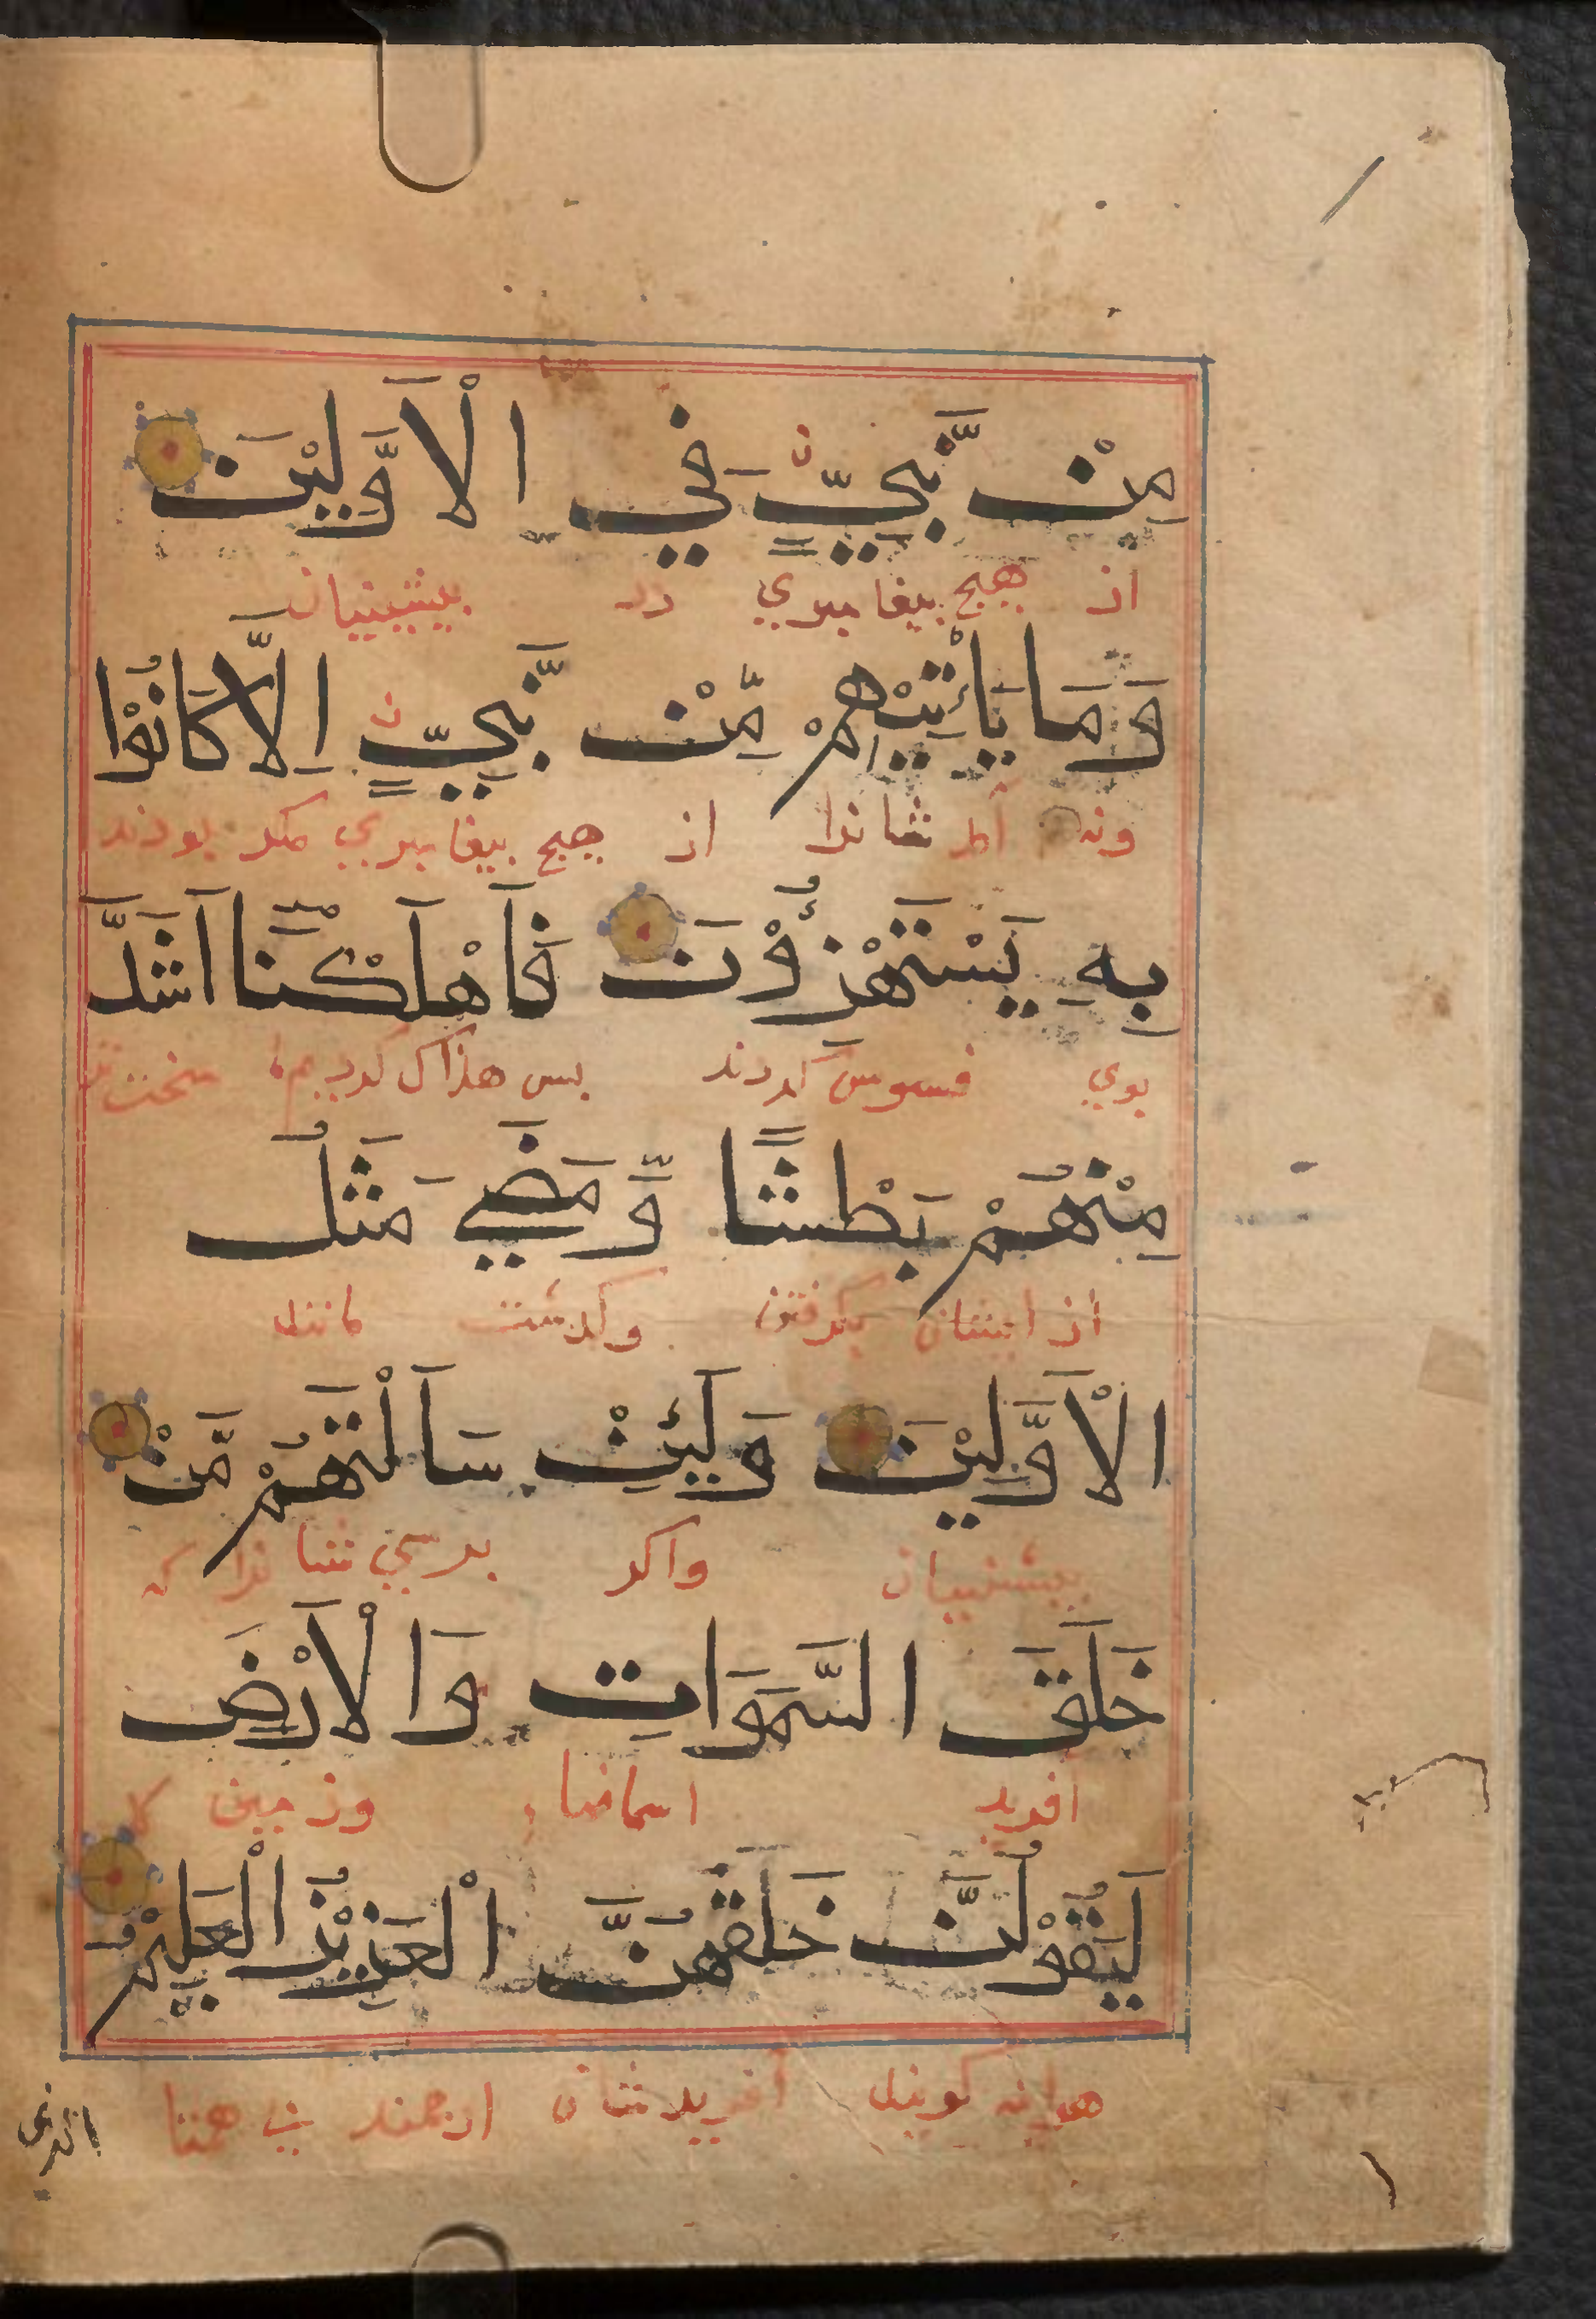 مِنْ نَّبِيٍّ فِي الْاَوَّلِيْنَ
از هيچ بيغامبري در بيشينيان
وَمَا يَأْتِيْهِمْ مِّنْ نَّبِيٍّ اِلَّا كَانُوْا
ونه آمد شانرا از هيچ بيغامبري مكر بودند
بِهِ يَسْتَهْزِؤُنَ فَاَهْلَكْنَا اَشَدَّ
بوي فسوس كردند بس هلاك كرديم سخت تر
مِنْهُمْ بَطْشًا وَّمَضَي مَثَلُ
از ايشان بكرفتن وكدشت مانند
الْاَوَّلِيْنَ وَلَئِنْ سَاَلْتَهُمْ مَّنْ
بيشينيان واكر برسي شانرا كه
خَلَقَ السَّمَوَاتِ وَالْاَرْضَ
افريد اسمانها وزمين
لَيَقُوْلُنَّ خَلَقَهُنَّ الْعَزِيْزُ الْعَلِيْمُ
هراينه كويند افريدشان ارجمند بي همتا
الذي